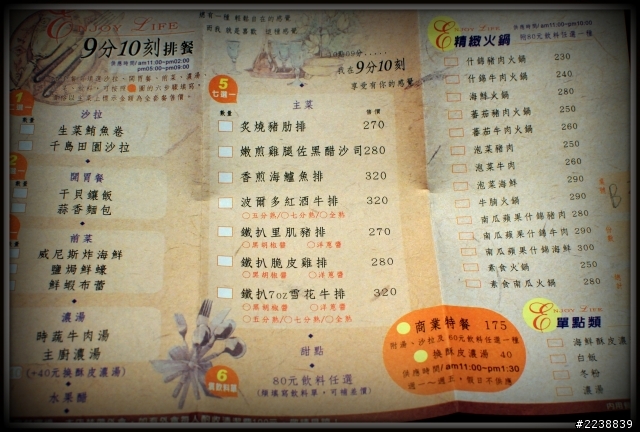 ENJOY LIFE
9分10刻排餐
供應時間/am11:00~pm02:00
pm05:00~pm09:00
數量
沙拉
生菜鮪魚卷
千島田園沙拉
開胃餐
干貝鑲飯
蒜香麵包
前菜
威尼斯炸海鮮
鹽焗鮮蠔
鮮蝦布蕾
濃湯
時蔬牛肉湯
主廚濃湯
(+40元換酥皮濃湯)
水果醋
我在9分10刻
享受有你的感覺
5
七選一
數量
主菜
售價
炙燒豬肋排 270
嫩煎雞腿佐黑醋沙司 280
香煎海鱸魚排 320
波爾多紅酒牛排 320
○五分熟/○七分熟/○全熟
鐵扒里肌豬排 270
○黑胡椒醬 ○洋蔥醬
鐵扒脆皮雞排 280
○黑胡椒醬 ○洋蔥醬
鐵扒7oz雪花牛排 320
○黑胡椒醬 ○洋蔥醬
○五分熟/○七分熟/○全熟
6
甜點
80元飲料任選
(煩填寫飲料單，可補差價)
ENJOY LIFE
精緻火鍋
供應時間/am11:00~pm10:00
附80元飲料任選一種
什錦豬肉火鍋 230
什錦牛肉火鍋 240
海鮮火鍋 280
蕃茄豬肉火鍋 250
蕃茄牛肉火鍋 260
泡菜豬肉 250
泡菜牛肉 260
泡菜海鮮 290
牛腩火鍋 290
南瓜蘋果什錦豬肉 280
南瓜蘋果什錦牛肉 290
南瓜蘋果什錦海鮮 300
素食火鍋 250
素食南瓜火鍋 290
商業特餐 175
附湯、沙拉及60元飲料任選一種
換酥皮濃湯 40
供應時間/am11:00~pm1:30
週一~週五，假日不供應
ENJOY LIFE
單點類
海鮮酥皮濃湯
白飯
冬粉
濃湯
#2238839